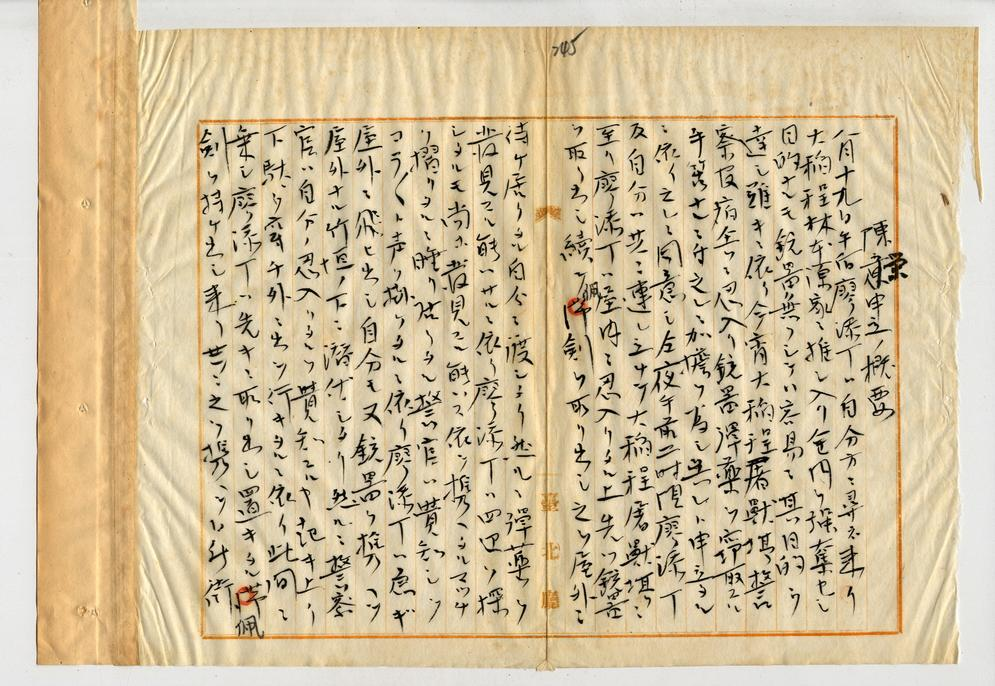 陳栄申立ノ概要
八月十九日午后廖添丁ハ自分方ニ尋ネ来リ
大稲程林本源家ニ推シ入リ金円ヲ強奪セシ
目的ナルモ銃器無クシテハ容易ニ其ノ目的ヲ
達シ難キニ依リ今宵大稲程屠獣場警
察官派出所ニ忍入リ銃器弾薬ヲ窃取スル
手筈ナルニ付之レニ加担ヲ為シ呉レト申立タル
ニ依リ之レニ同意シ仝夜午前二時頃廖添丁
及自分ハ共ニ連レ立チテ大稲程屠獣場ニ
至リ廖添丁ハ室内ニ忍入リタル上先ツ銃器
ヲ取リ出シ続テ佩剣ヲ取リ出シ之ヲ屋外ニ
待ケ居リタル自分ニ渡シタリ然ルニ弾薬ヲ
発見スル能ハサルニ依リ廖添丁ハ四辺ヲ探
シタルモ尚ホ発見スル能ハス依ツテ携ヘタルマッチ
ヲ摺リタルニ睡リ居リタル警官ハ覚知シ
コラ〱ト声ヲ掛ケタルニ依リ廖添丁ハ急ギ
屋外ニ飛ヒ出シ自分モ又銃器ヲ携ヘツツ
屋外ナル竹垣ノ下ニ潜伏シタリ然ルニ警察
官ハ自分ノ忍入リタルヲ覚知スルヤ起キ上リ
下駄ヲ穿チ外ニ出ツ行キタルニ依リ此間ニ
乗シ廖添丁ハ先キニ取リ出シ置キタル佩
剣ヲ持ケ出シ来リ共ニ之ヲ携ヘツツ新街
臺北廳
745